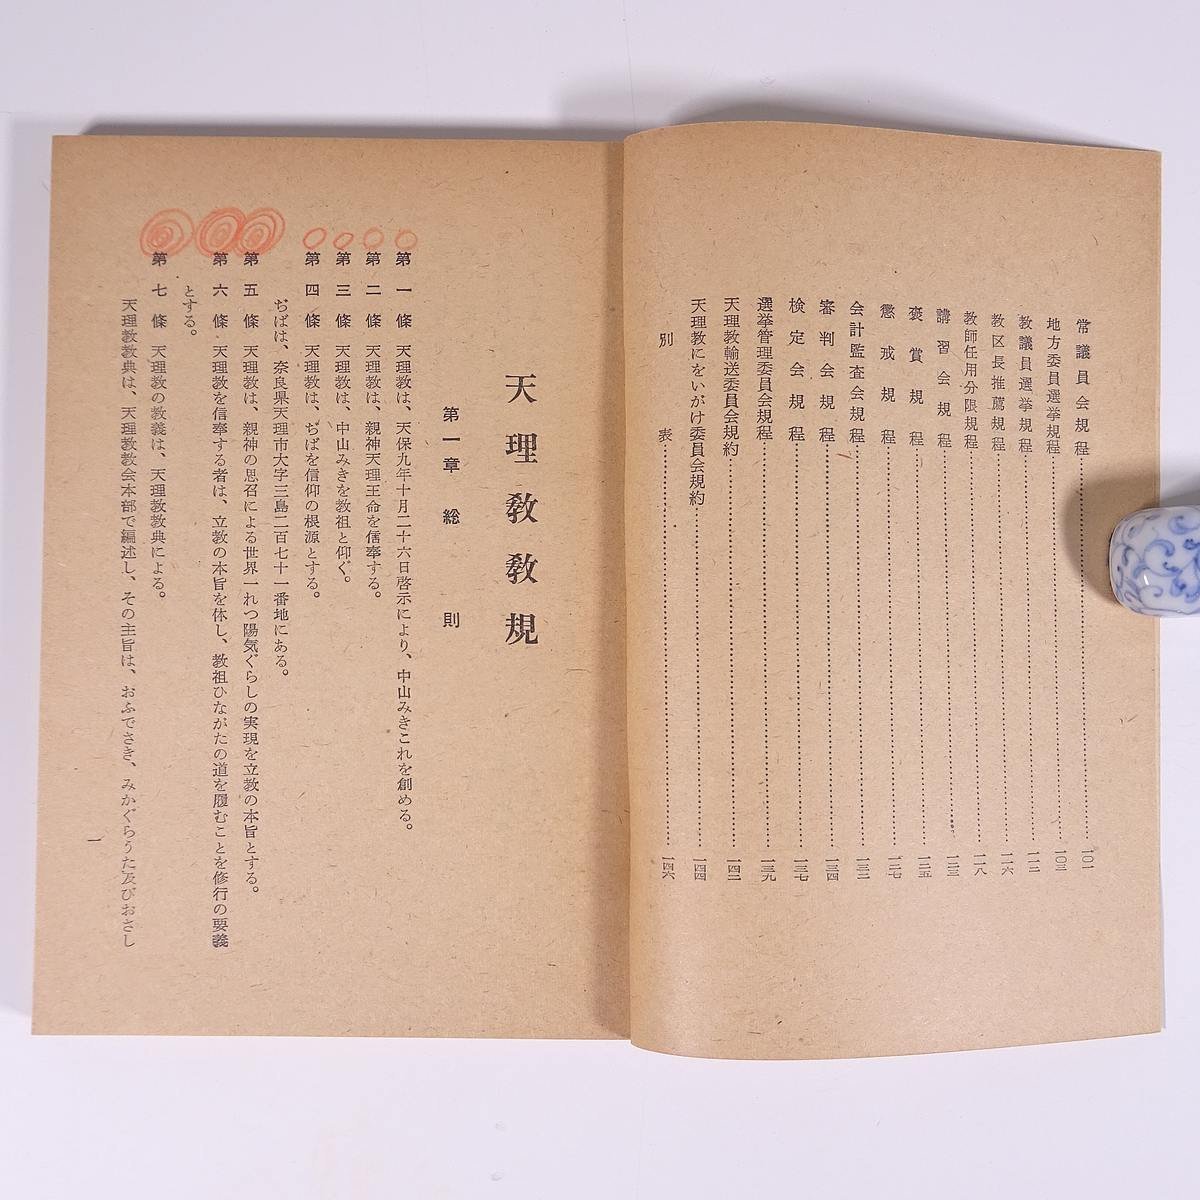 常議員会規程……一〇一
地方委員選挙規程……一〇三
教議員選挙規程……一一二
教区長推薦規程……一一六
教師任用分限規程……一一八
講習会規程……一二三
褒賞規程……一二五
懲戒規程……一二七
会計監査会規程……一三二
審判会規程……一三四
検定会規程……一三七
選挙管理委員会規程……一三九
天理教輸送委員会規約……一四二
天理教にをいがけ委員会規約……一四四
別表……一四六
天理教教規
第一章 総則
第一條 天理教は、天保九年十月二十六日啓示により、中山みきこれを創める。
第二條 天理教は、親神天理王命を信奉する。
第三條 天理教は、中山みきを教祖と仰ぐ。
第四條 天理教は、ぢばを信仰の根源とする。
ぢばは、奈良県天理市大字三島二百七十一番地にある。
第五條 天理教は、親神の思召による世界一れつ陽気ぐらしの実現を立教の本旨とする。
第六條 天理教を信奉する者は、立教の本旨を体し、教祖ひながたの道を履むことを修行の要義
とする。
第七條 天理教の教義は、天理教教典による。
天理教教典は、天理教教会本部で編述し、その主旨は、おふでさき、みかぐらうた及びおさし
一